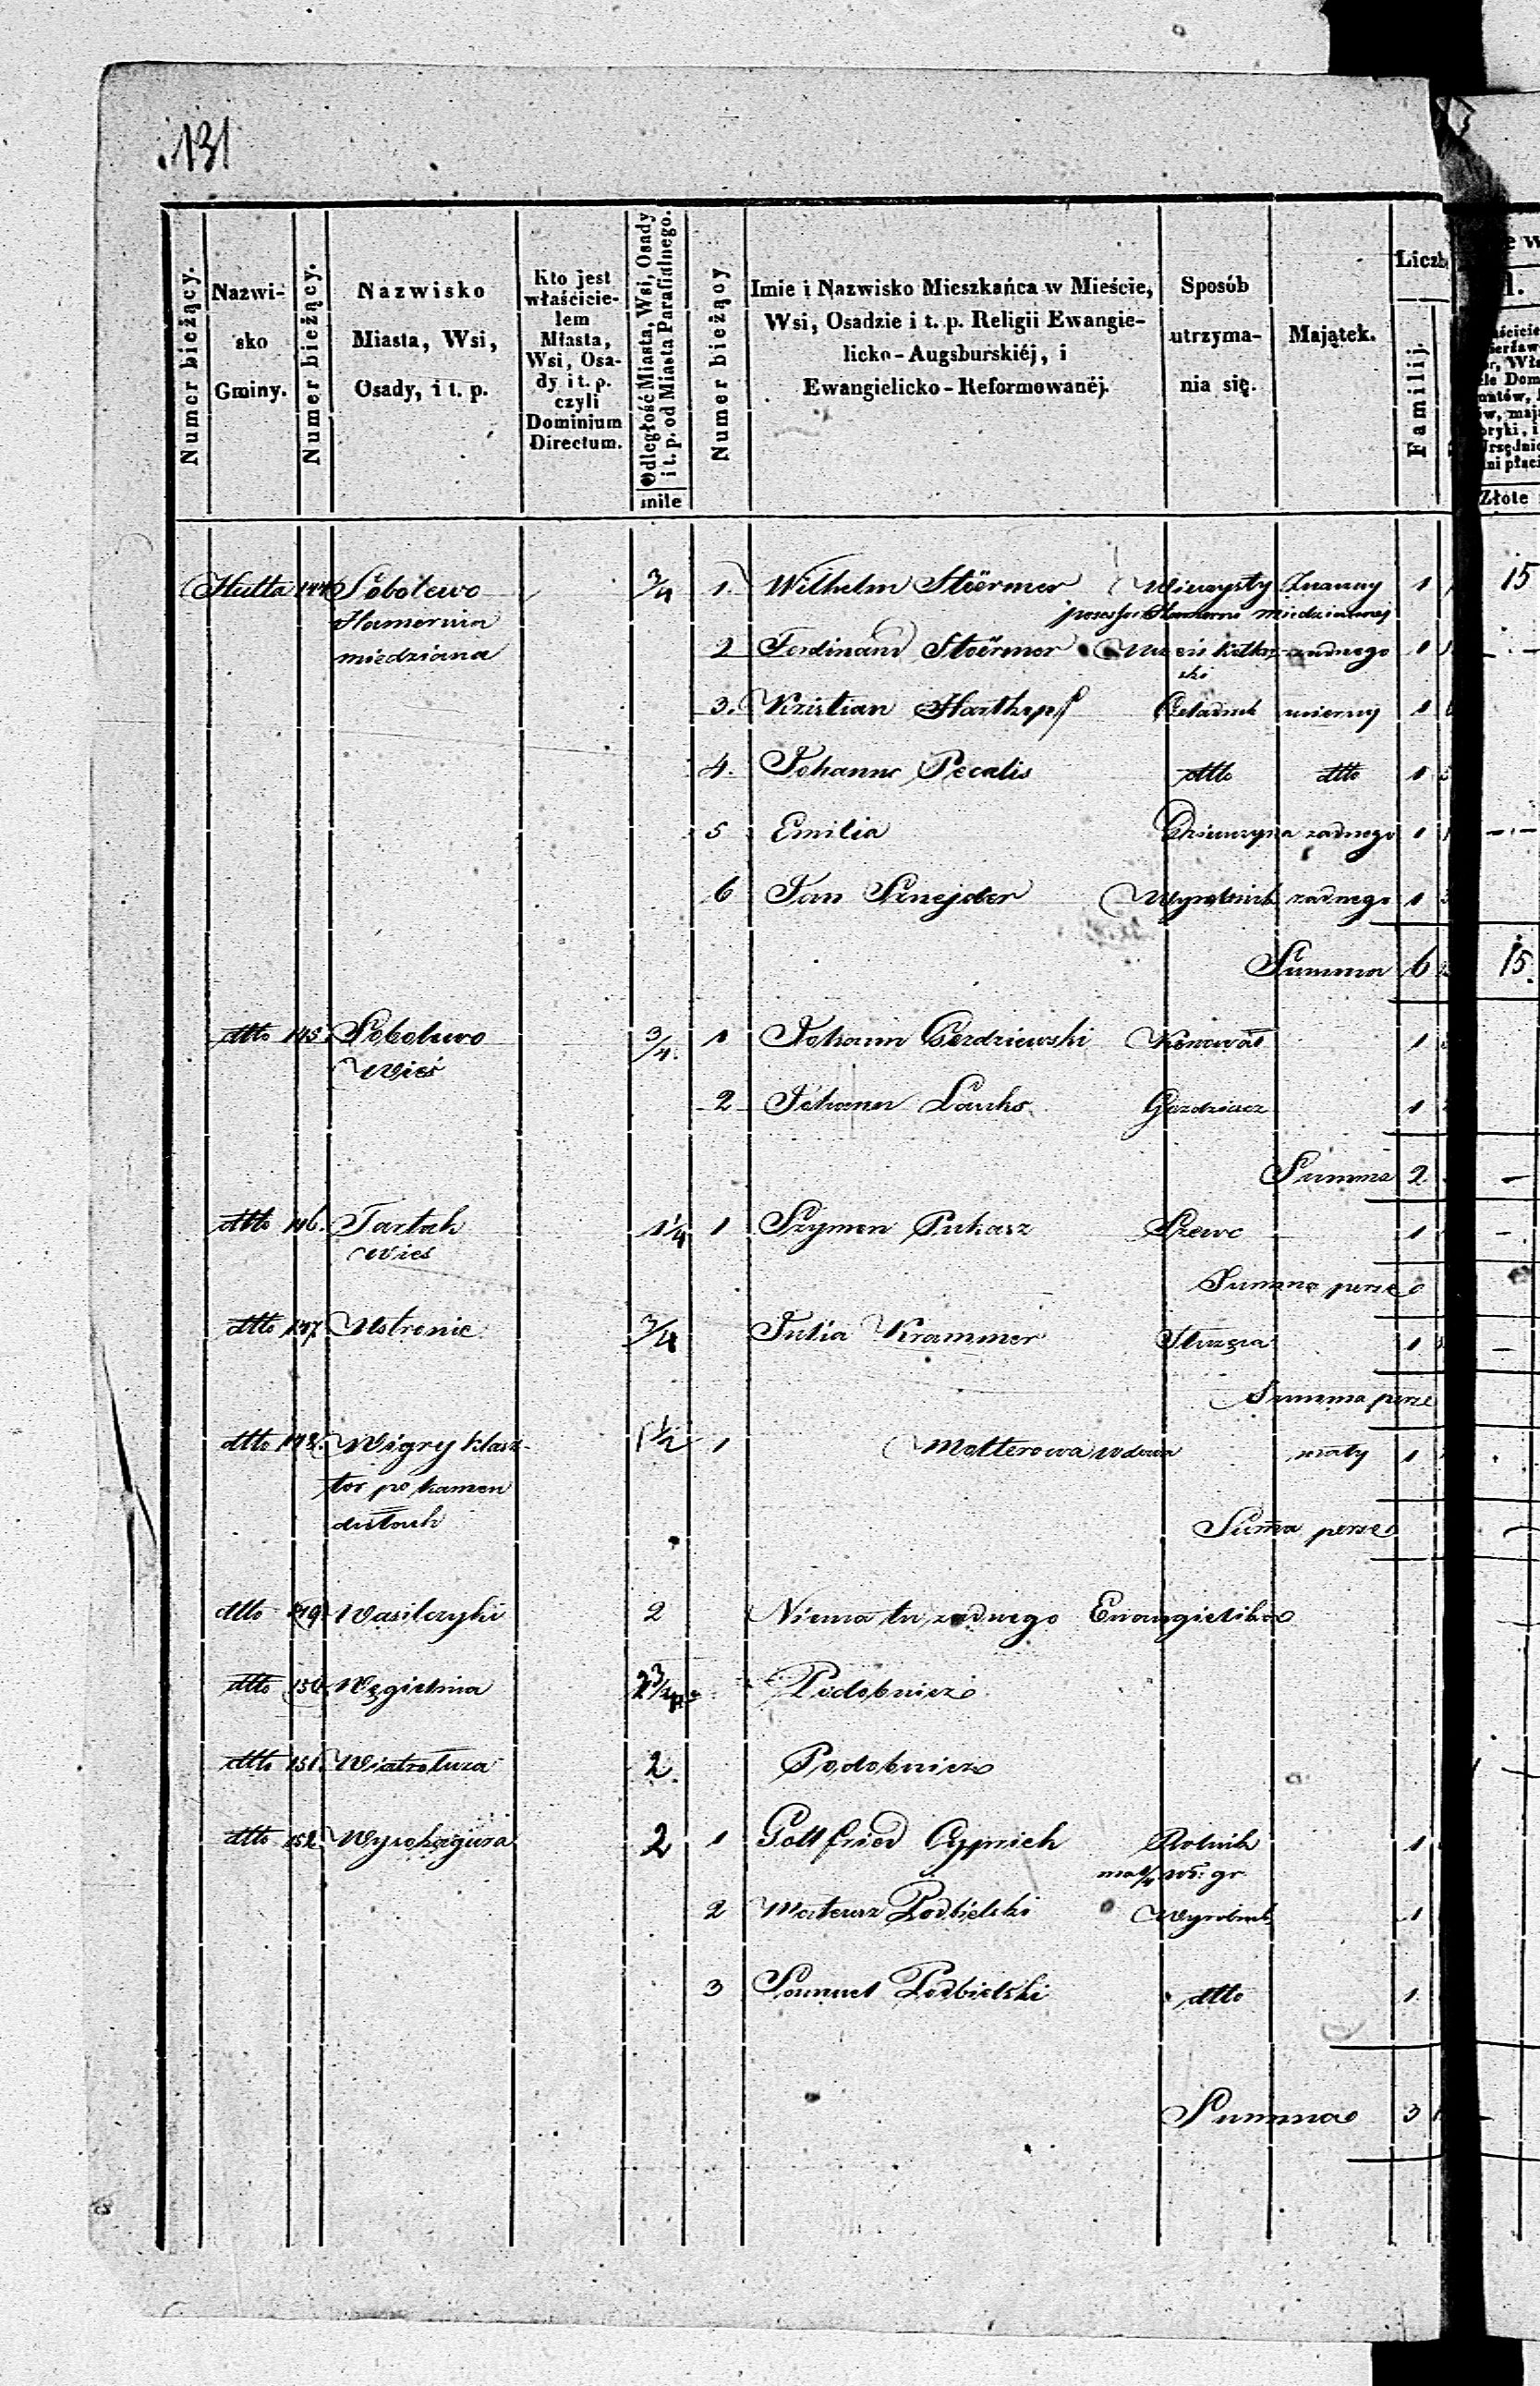 131
Numer bieżący.
Nazwisko Gminy.
Numer bieżący.
Nazwisko Miasta, Wsi, Osady, i t. p.
Kto jest właścicielem Miasta, Wsi, Osady i t. p. czyli Dominium Directum.
Odległość Miasta, Wsi, Osady i t. p. od Miasta Parafialnego.
mile
Numer bieżący
Imie i Nazwisko Mieszkańca w Mieście,
Wsi, Osadzie i t. p. Religii Ewangie-
licko-Augsburskiéj, i
Ewangielicko-Reformowanéj.
Sposób utrzymania się.
Majątek.
Liczb
Familij.
Złote
Hutta 144 Sobolewo 3/4 1. Wilhelm Stoërmer Wieczysty Znaczny 1 15
Hamernia posessor Hamerni miedziannej
miedziana 2 Ferdinand Stoërmer żadnego 1
3. Kristian Czeladnik mierny 1
4. Johann Pecalis dtto dtto 1
5 Emilia Dziewczyna zadnego 1
6 Jan Sznejder Wyrobnik zadnego 1
Summa 6 15.
dtto 145. Sobolewo 3/4. 1 Johann Gerdziewski Kowal 1
Wieś
2 Johann Lauks 1
Summa 2
dtto 146. Tartak 1 1/4 1 Szymon Pukasz Szewc 1
Wies
Summa perse
dtto 147 Ustronie 3/4 Julia Krammer Służąca 1
Summa perse
dtto 148. Wigry klasz- 1 1/2 1 Molterowa wdowa mały 1
tor po kamen
dułach Suma perse
dtto 149 Wasilczyki 2 Niema tu zadnego Ewangielika
dtto 150. Węgielnia 2 3/4 Podobnież
dtto 151. Wiatrołuza 2. Podobniez
dtto 152. Wysokagura 2 1 Gottfried Cyprich Rolnik 1
gr
2 Mateusz Podbielski Wyrobnik 1
3 Samuel Podbielski dtto 1.
Summa 3